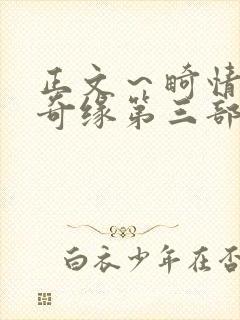 正文～畸情
奇缘第三部
白衣少年在否